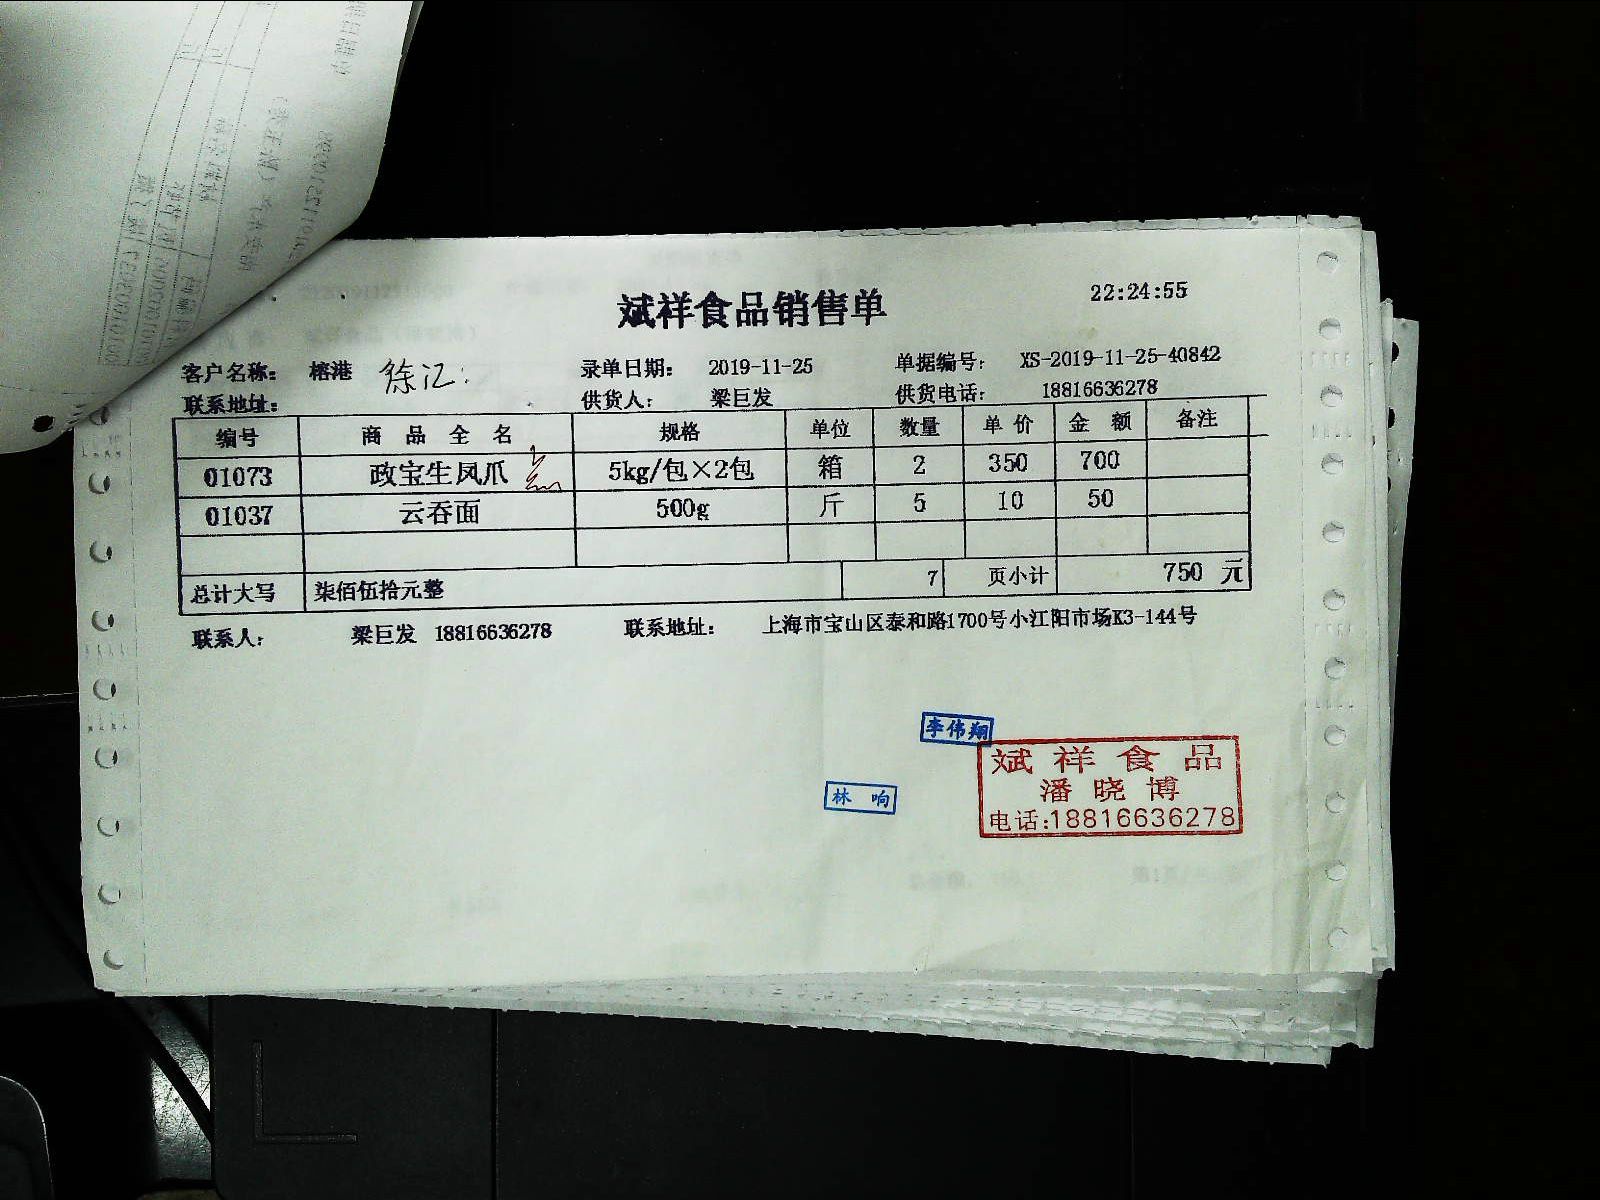 斌祥食品销售单
22:24:55
客户名称： 榕港 徐汇 录单日期： 2019-11-25 单据编号： XS-2019-11-25-40842
联系地址： 供货人： 梁巨发 供货电话： 18816636278
编号 商品全名 规格 单位 数量 单价 金额 备注
01073 政宝生凤爪 5kg/包×2包 箱 2 350 700
01037 云吞面 500g 斤 5 10 50
总计大写 柒佰伍拾元整 7 页小计 750 元
联系人： 梁巨发 18816636278 联系地址： 上海市宝山区泰和路1700号小江阳市场K3-144号
李伟翔
斌祥食品
潘晓博
林响
电话:18816636278